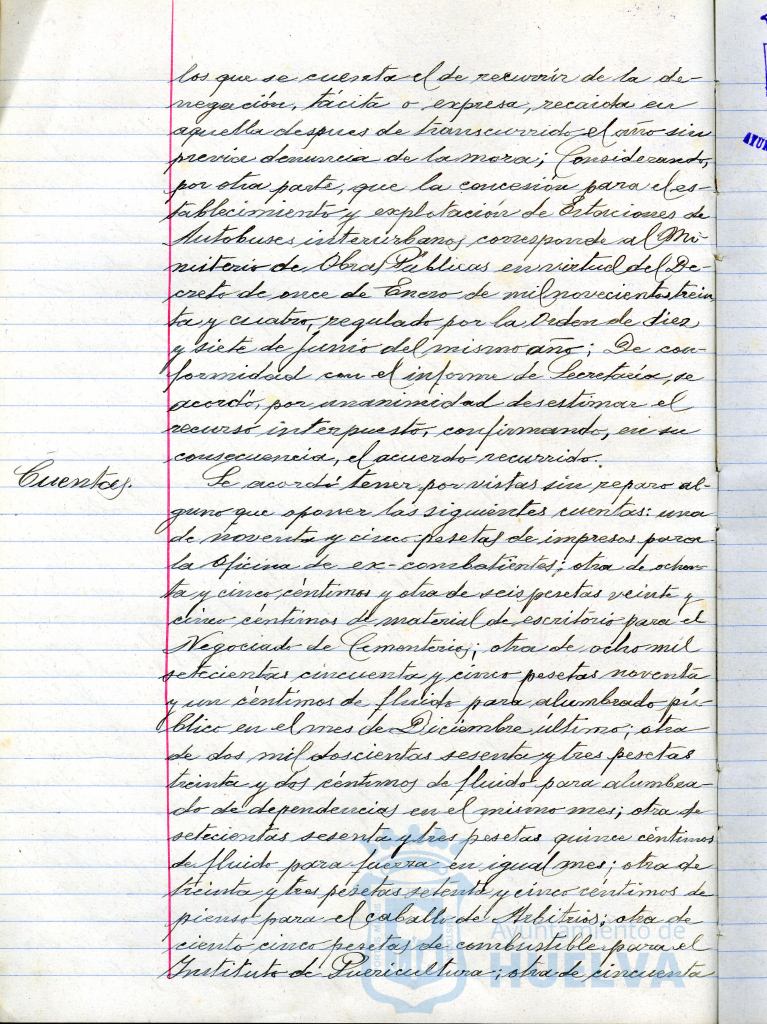 los que se cuenta el de recurrir de la de-
negación, tácita o expresa, recaida en
aquella despues de transcurrido el año sin
previa denuncia de la mora; Considerando,
por otra parte, que la concesión para el es-
tablecimiento y explotación de Estaciones de
Autobuses interurbanos corresponde al Mi-
nisterio de Obras Públicas en virtud del De-
creto de once de Enero de mil novecientos trein
ta y cuatro, regulado por la Orden de diez
y siete de Junio del mismo año; De con-
formidad con el informe de Secretaría, se
acordó, por unanimidad desestimar el
recurso interpuesto, confirmando, en su
consecuencia, el acuerdo recurrido.
Cuentas.
Se acordó tener por vistas sin reparo al-
guno que oponer las siguientes cuentas: una
de noventa y cinco pesetas de impresos para
la Oficina de ex-combatientes; otra de ochen-
ta y cinco céntimos y otra de seis pesetas veinte y
cinco céntimos de material de escritorio para el
Negociado de Cementerio; otra de ocho mil
setecientas cincuenta y cinco pesetas noventa
y un céntimos de fluido para alumbrado pú-
blico en el mes de Diciembre último; otra
de dos mil doscientas sesenta y tres pesetas
treinta y dos céntimos de fluido para alumbra-
do de dependencias en el mismo mes; otra de
setecientas sesenta y tres pesetas quince céntimos
de fluido para fuerza en igual mes; otra de
treinta y tres pesetas setenta y cinco centimos de
pienso para el caballo de Arbitrios; otra de
ciento cinco pesetas de combustible para el
Instituto de Puericultura; otra de cincuenta
Ayuntamiento de
HUELVA